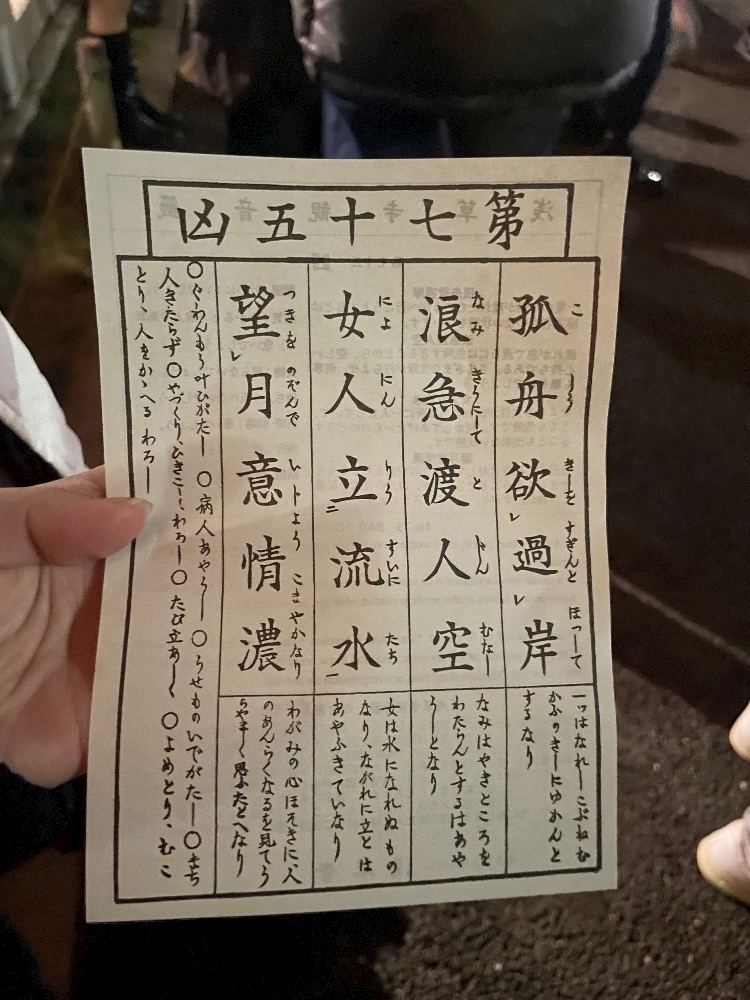 第七十五凶
こ しう きしを すぎんと ほつして
孤舟欲過岸
なみ きうにして と じん むなし
浪急渡人空
によ にん りう すいに たち
女人立流水
つきを のぞんで いじよう こまやかなり
望月意情濃
一ッはなれしこぶねむ
かふのきしにゆかんと
するなり
なみはやきところを
わたらんとするはあや
うしとなり
女は水になれぬもの
なり、ながれに立とは
あやふきていなり
わがみの心ほそきに、人
のあんらくなるを見てう
らやましく思ふたとへなり
〇ぐわんもう叶ひがたし 〇病人あやうし 〇うせものいでがたし〇まち
人きたらず〇やづくり、ひきこし、わろし〇たび立あしく 〇よめとり、むこ
とり、人をかゝへる わろし